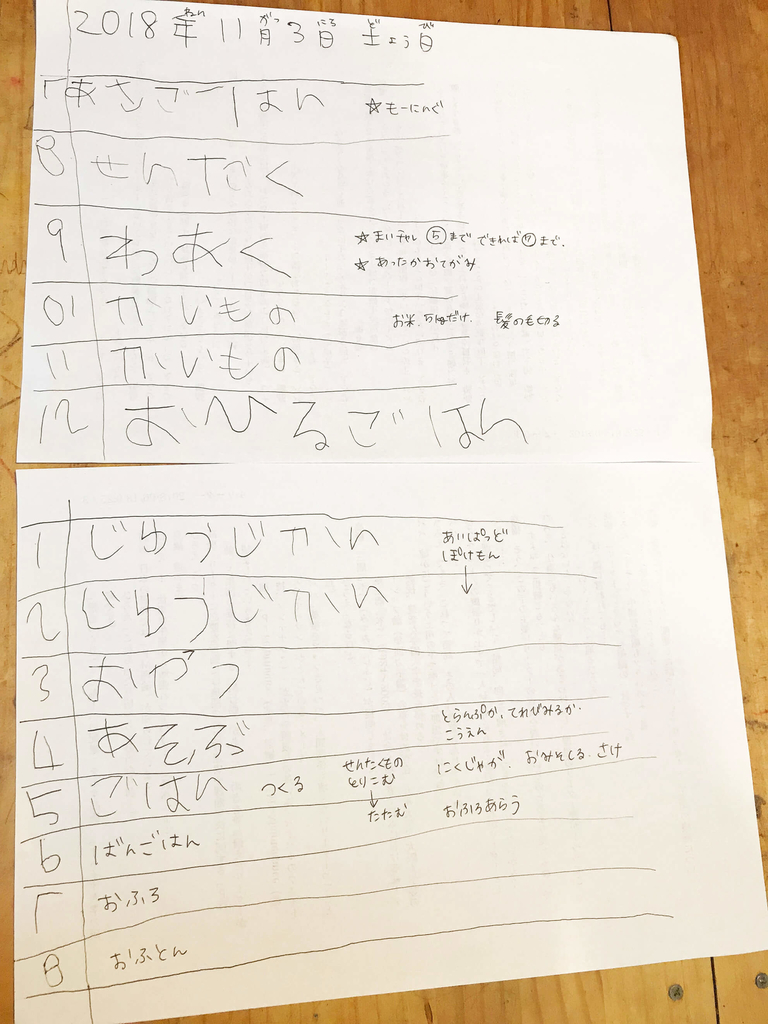 2018年11月3日 土よう日
ねん がつ にち ど び
7 あさごーはん ☆もーにんぐ
8 せんたく
9 わあく ☆まいチャレ⑤まで できれば⑦まで.
☆あったかおてがみ
01 かいもの お米. だけ. 髪の毛切る
11 かいもの
12 おひるごはん
1 じゆうじかん あいぱっど
ぽけもん
↓
2 じゆうじかん
3 おやつ
4 あそぶ とらんぷか、てれびみるか.
こうえん
5 ごはん つくる せんたくもの とりこむ ↓ たたむ にくじゃが. おみそしる. さけ
おふろあらう
6 ばんごはん
7 おふろ
8 おふとん